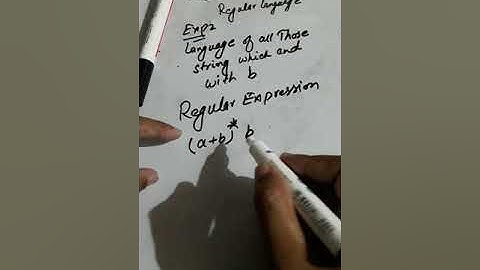 Regular language
Exp2
Language of all Those
string which and
with b
Regular Expression
(a+b)* b